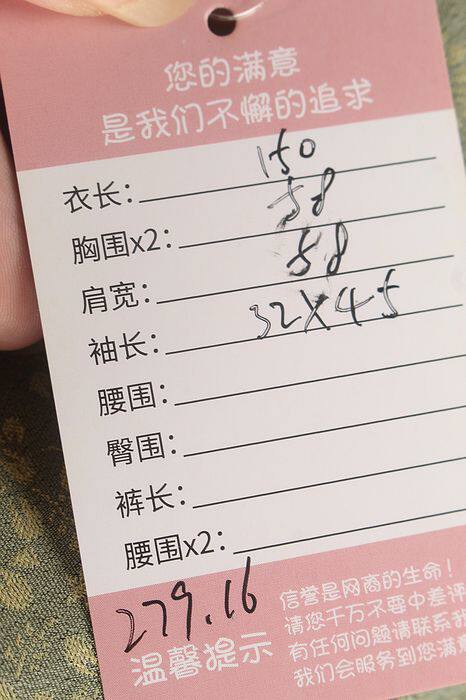 您的满意
是我们不懈的追求
衣长: 150
胸围x2: 58
肩宽: 58
袖长: 32X45
腰围:
臀围:
裤长:
腰围x2:
279.16
温馨提示
信誉是网商的生命!
请您千万不要中差评
有任何问题请联系我
我们会服务到您满意